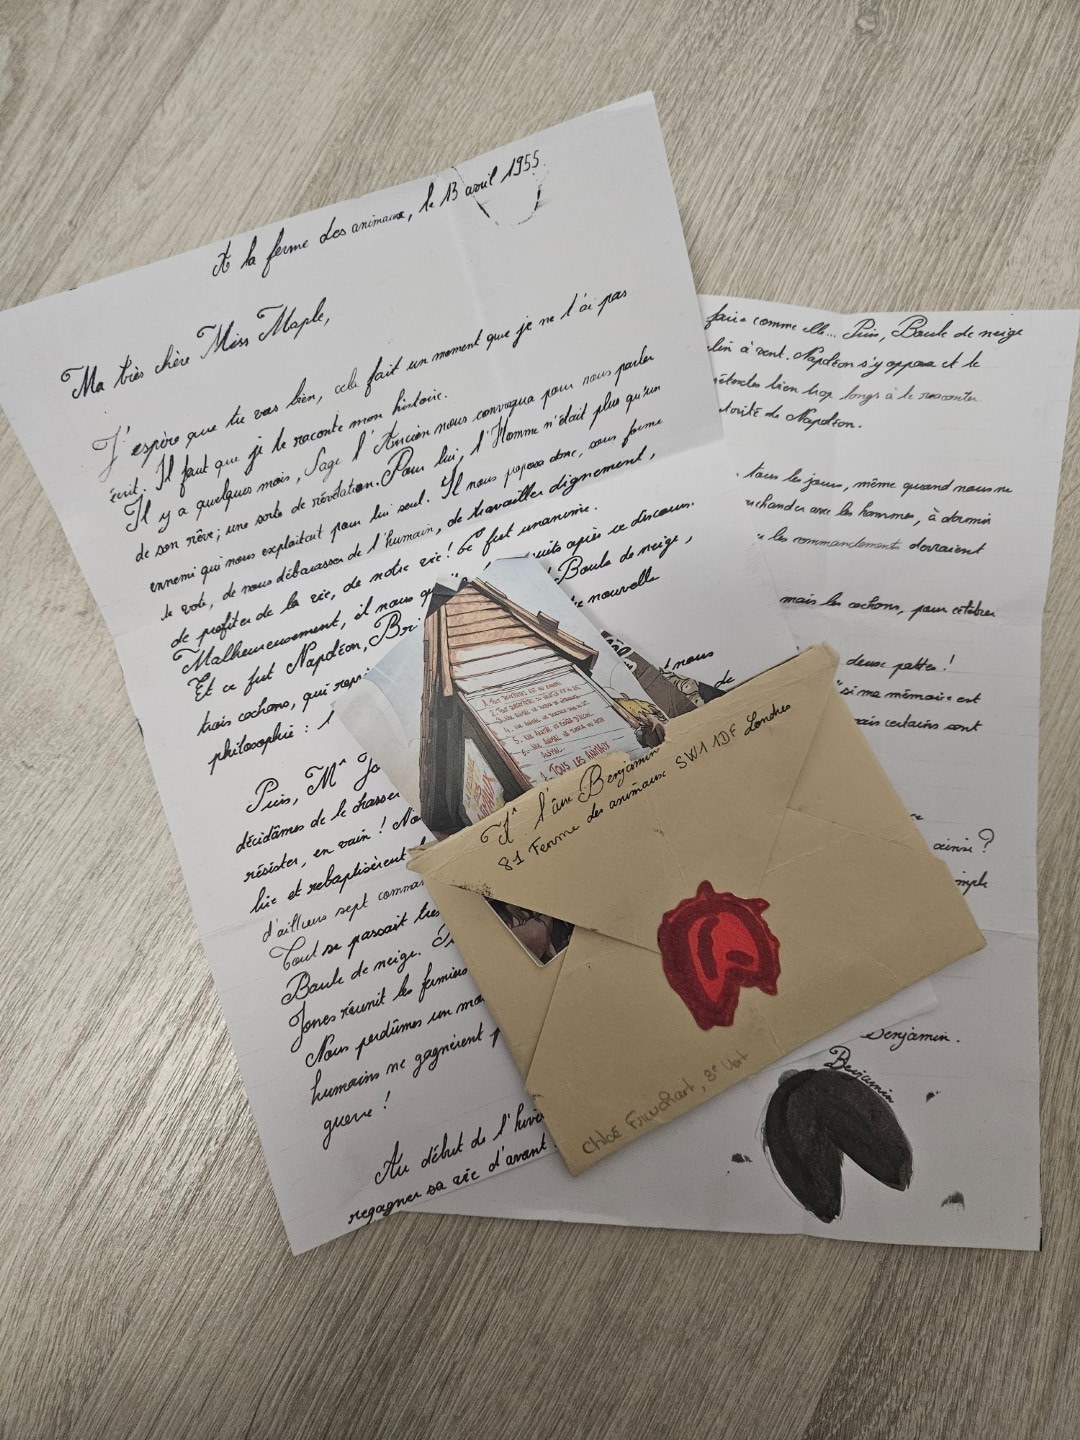 A la ferme des animaux, le 13 avril 1955.
Ma très chère Miss Maple,
J'espère que tu vas bien, cela fait un moment que je ne t'ai pas
écrit. Il faut que je te raconte mon histoire.
Il y a quelques mois, Sage l'Ancien nous convoqua pour nous parler
de son rêve; une sorte de révélation. Pour lui, l'Homme n'était plus qu'un
ennemi qui nous exploitait pour lui seul. Il nous proposa donc, sous forme
de vote, de nous débarasser de l'humain, de travailler dignement,
de profiter de la vie, de notre vie! Ce fut unanime.
Malheureusement, il nous qu uits après ce discours.
Et ce fut Napoléon, Br Boule de neige,
trois cochons, qui repri nouvelle
philosophie : l
nous
de
Puis, Mr Jo
décidâmes de le chasser
résister, en vain ! No
lie et rebaptisèrent l
d'ailleurs sept comman
Tout se passait très
Boule de neige.
Jones réunit les fermiers
Nous perdîmes un mo
humains ne gagnèrent p
guerre !
Au début de l'hiver
regagner sa vie d'avant
faire comme elle... Puis, Boule de neige
lin à vent. Napoléon s'y opposa et le
bien trop longs à te raconter
torité de Napoléon.
tous les jours, même quand nous ne
rchander avec les hommes, à dormir
les commandements devraient
mais les cochons, pour célébrer
deux pattes !
si ma mémoire est
rais certains sont
ainsi ?
mple
Benjamin.
Benjamin
5. AUCUN ANIMAL
TOUS LES ANIMAUX
Mr l'âne Benjamin
81 Ferme des animaux SW1 1DF Londres
Chloé Fruchart, 3e Vert